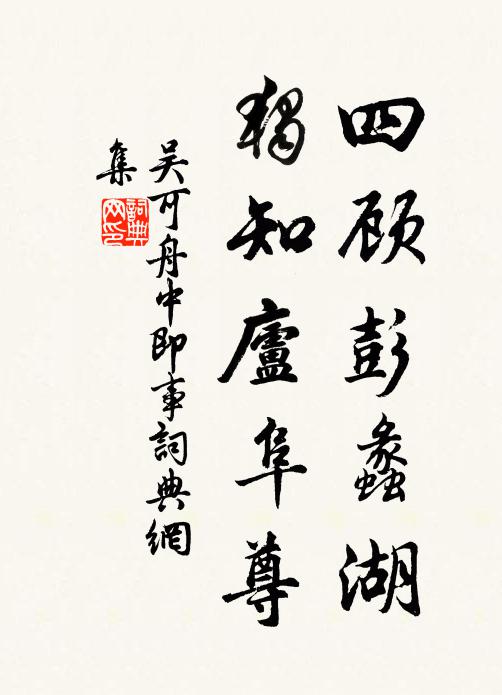 四顾彭蠡湖
獨知廬阜尊
吴可舟中即事詞典網
集
詞典网印